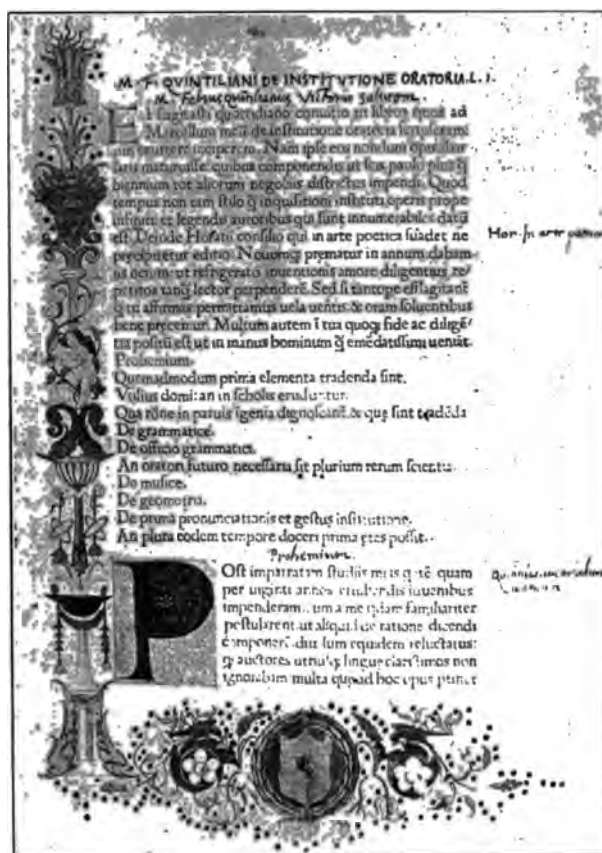 M. F. QVINTILIANI DE INSTITVTIONE ORATORIA. L. I.
M. Fabius Quintilianus Victorio Salutem.
Efflagitasti quottidiano conuitio ut libros quos ad
Marcellum meū de institutione oratoria
emittere inciperem. Nam ipse eos nondum opinabar
satis maturuisse. quibus componendis ut scis paulo plus q̄
biennium tot alioroum negociis districtus impendi. Quod
tempus non tam stilo q̄ inquisitioni instituti operis prope
infiniti et legendis autoribus qui sunt innumerabiles datū
est. Deinde Horatii consilio qui in arte poetica suadet ne
precipitetur editio. Nonumq; prematur in annum dabam
ocium: ut refrigerato inuentionis amore diligentius re/
petitos tanq̄ lector perpenderē. Sed si tantope efflagitanť
q̄ tu affirmas permittamus uela uentis & oram soluentibus
bene precemur. Multum autem ī tua quoq; fide ac diligē/
tia positū est ut in manus hominum q̄ emēdatissimi ueniāt.
Prohemium.
Quemadmodum prima elementa tradenda sint.
Vtilius domi: an in scholis erudiantur.
Qua rōne in paruis īgenia dignoscant̄. & que sint tradēda
De grammatice.
De officio grammatici.
An oratori futuro necessaria sit plurium rerum scientia.
De musice.
De geometria.
De prima pronunciationis et gestus institutione.
An plura eodem tempore doceri prima etas possit.
Prohemium.
POst impetratam studiis meis quietē quam
per uiginti annos erudiendis iuuenibus
impenderam. cum a me quidam familiariter
postularent. ut aliquid de ratione dicendi
componerē. diu sum equidem reluctatus:
q̄ auctores utriusq; lingue clarissimos non
ignorabam multa que ad hoc opus
Hor. in arte